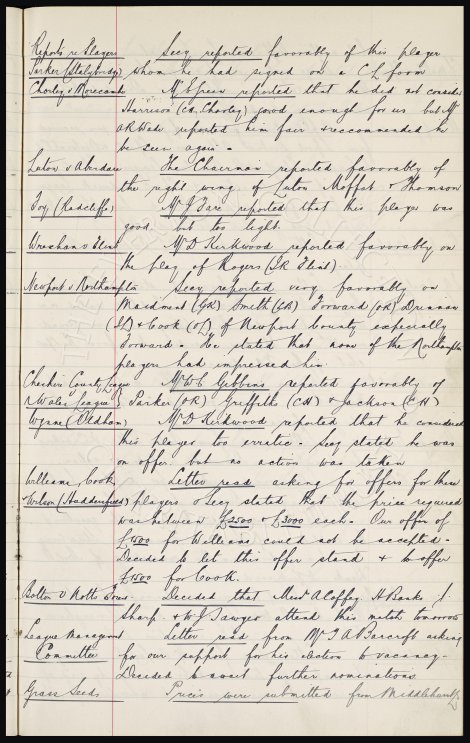 Reports re Players Secy reported favorably of this player
Parker (Stalybridge) whom he had signed on a C.L. form
Chorley v Morecambe Mr Green reported that he did not consider
Harrison (CH, Chorley) good enough for us but Mr
Wade reported him fair & recommended he
be seen again -
Luton v Aberdare The Chairman reported favorably of
the right wing of Luton Moffat & Thomson
Foy (Radcliffe) Mr J Fare reported that this player was
good but too light.
Wrexham v Flint Mr D Kirkwood reported favorably on
the play of Rogers (IR Flint)
Newport v Northampton Secy reported very favorably on
Maidment (GK) Smith (CR) Forward (OR) Drinnan
(IL) & Cook (OL) of Newport County especially
Forward - He stated that none of the Northampton
players had impressed him.
Cheshire County League Mr W C Gibbins reported favorably of
v Wales League Parker (OR) Griffiths (CH) & Jackson (CH)
Wynne (Oldham) Mr D Kirkwood reported that he considered
this player too erratic - Secy stated he was
on offer but no action was taken
Williams, Cook, Letter read asking for offers for these
Wilson (Huddersfield) players & Secy stated that the price required
was between £2500 & £3000 each - Our offer of
£1500 for Williams could not be accepted -
Decided to let this offer stand & to offer
£1500 for Cook.
Bolton v Notts Forest Decided that Messrs A Coffey, H Banks
Sharp & W J Sawyer attend this match tomorrow
League Management Letter read from Mr T A Barcroft asking
Committee for our support for his election to vacancy -
Decided to await further nominations
Grass Seeds Prices were submitted from